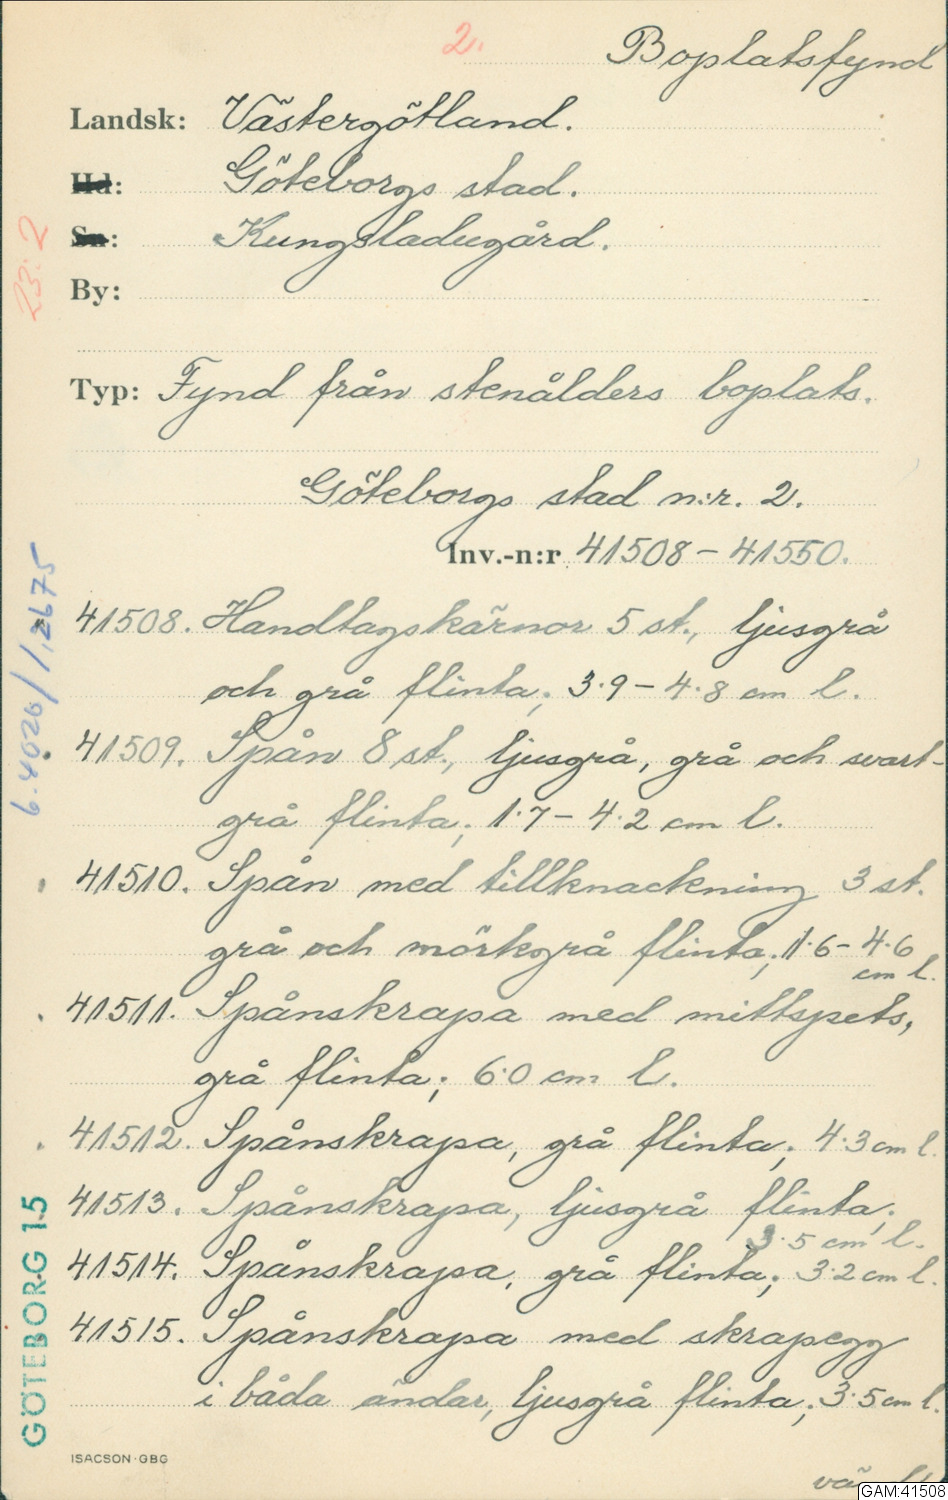 2. Boplatsfynd
Landsk: Västergötland.
Hd: Göteborgs stad.
Sn: Kungsladugård.
23:2
By:
Typ: Fynd från stenålders boplats.
Göteborgs stad n:r. 2.
Inv.-n:r 41508 – 41550.
41508. Handtagskärnor 5 st., ljusgrå
och grå flinta; 3.9 – 4.8 cm l.
41509. Spån 8 st., ljusgrå, grå och svart-
grå flinta; 1.7 – 4.2 cm l.
41510. Spån med tillknackning 3 st.
grå och mörkgrå flinta; 1.6 – 4.6
cm l.
41511. Spånskrapa med mittspets,
grå flinta; 6.0 cm l.
41512. Spånskrapa, grå flinta; 4.3 cm l.
41513. Spånskrapa, ljusgrå flinta;
3.5 cm l.
41514. Spånskrapa, grå flinta; 3.2 cm l.
41515. Spånskrapa med skrapegg
i båda ändar, ljusgrå flinta; 3.5 cm l.
GÖTEBORG 15
ISACSON·GBG
GAM:41508